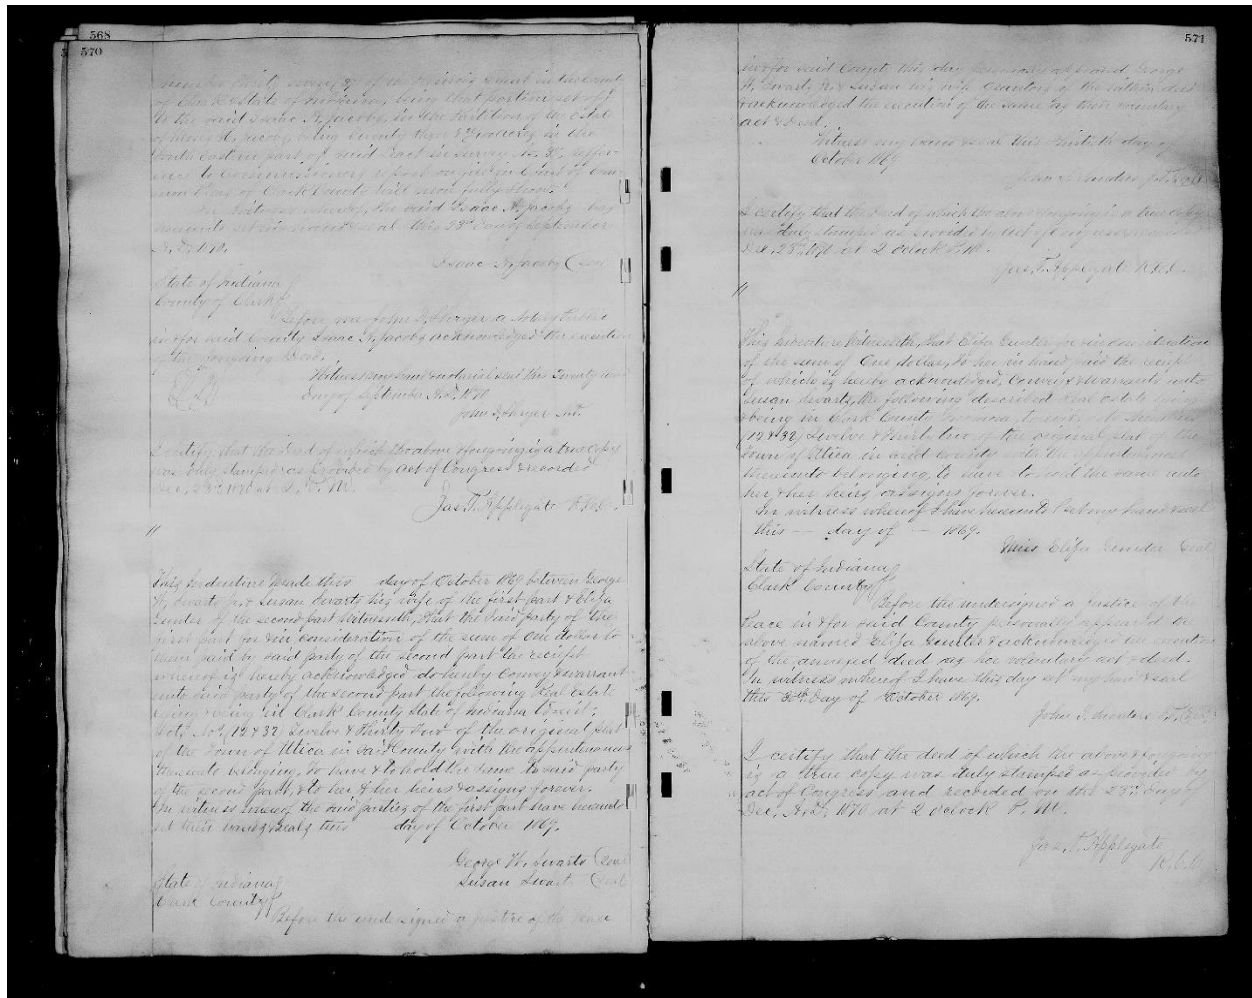 568
570
of the County
of Clark & State of Indiana, being that portion set off
to the said Isaac H. Jacobs, in the Partition of the Estate
of H. Jacobs, being Seventy three & in the
South eastern part of said tract in survey No. refer-
ence to Commissioners report in Court of Com-
mon Pleas of Clark County will more fully show.
In Witness whereof, the said Isaac H. Jacobs has
hereunto set his hand & seal this 23rd day of September
A.D. 1870.
Isaac H. Jacobs (seal
State of Indiana
County of Clark
Before me John a Notary Public
in & for said County Isaac H. Jacobs acknowledged the execution
of the foregoing Deed.
Witness my hand & notarial seal this Twenty
Day of September A.D. 1870
John
I certify that the deed of which the above & foregoing is a true copy
was duly stamped as provided by act of Congress & recorded
Dec. 23rd 1870 at 2. P. M.
Jas. T. Applegate R.C.C.
"
This Indenture made this day of October 1869 between George
W. Swarts Jr. & Susan Swarts his wife of the first part & Eliza
of the second part Witnesseth, that the said party of the
first part for & in consideration of the sum of One dollar to
them paid by said party of the second part the receipt
whereof is hereby acknowledged do hereby Convey & warrant
unto said party of the second part the following Real Estate
lying & being in Clark County State of Indiana Towit;
Lots Nos. (12 & 32) Twelve & Thirty Two of the original plat
of the Town of Utica in said County with the appurtenances
thereunto belonging, To have & to hold the same to said party
of the second part, & to her & her heirs & assigns forever.
In witness whereof the said parties of the first part have hereunto
set their hands & seals this day of October 1869.
George W. Swarts (seal
Susan Swarts (seal
State of Indiana
Clark County
Before the undersigned a Justice of the Peace
571
in & for said County this day personally appeared George
W. Swarts Jr. & Susan his wife Grantors of the within deed
& acknowledged the execution of the same as their voluntary
act & deed.
Witness my hand & seal this day of
October 1869
John
I certify that the deed of which the above & foregoing is a true copy
was duly stamped as provided by act of Congress & recorded
Dec. 23rd 1870 at 2 oclock P.M.
Jas. T. Applegate R.C.C.
"
This Indenture Witnesseth, that Eliza for & in consideration
of the sum of One dollar, to her in hand paid the receipt
of which is hereby acknowledged, Conveys & Warrants unto
Susan Swarts, the following described Real Estate lying
& being in Clark County Indiana towit:
(12 & 32) Twelve & thirty two of the original plat of the
Town of Utica in said County with the appurtenances
thereunto belonging, to have & to hold the same unto
her & her heirs & assigns forever.
In witness whereof I have hereunto set my hand & seal
this — day of — 1869.
Miss Eliza Seal
State of Indiana
Clark County
Before the undersigned a Justice of the
Peace in & for said County personally appeared the
above named Eliza & acknowledged the execution
of the annexed deed as her voluntary act & deed.
In witness whereof I have this day set my hand & seal
this 30th day of October 1869.
John
I certify that the deed of which the above & foregoing
is a true copy was duly stamped as provided by
act of Congress and recorded on the 23rd day of
Dec. A.D. 1870 at 2 oclock P. M.
Jas. T. Applegate
R.C.C.